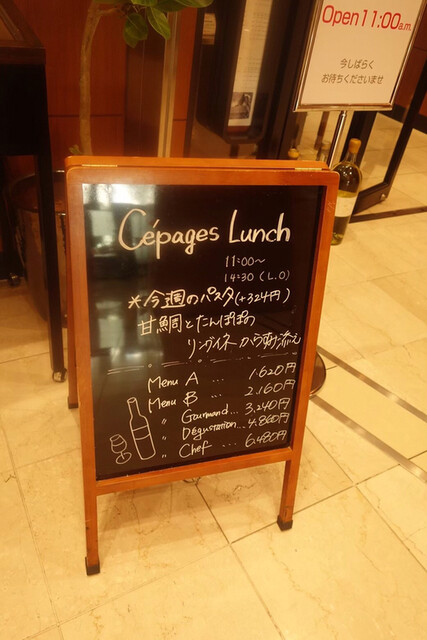 Open 11:00a.m.
今しばらく
お待ちくださいませ
Cépages Lunch
11:00〜
14:30 (L.O)
※今週のパスタ(+324円)
甘鯛とたんぽぽの
リングイネ からすみ添え
Menu A ... 1.620円
Menu B ... 2.160円
〃 Gourmand... 3,240円
〃 Dégustation... 4.860円
〃 Chef ... 6.480円